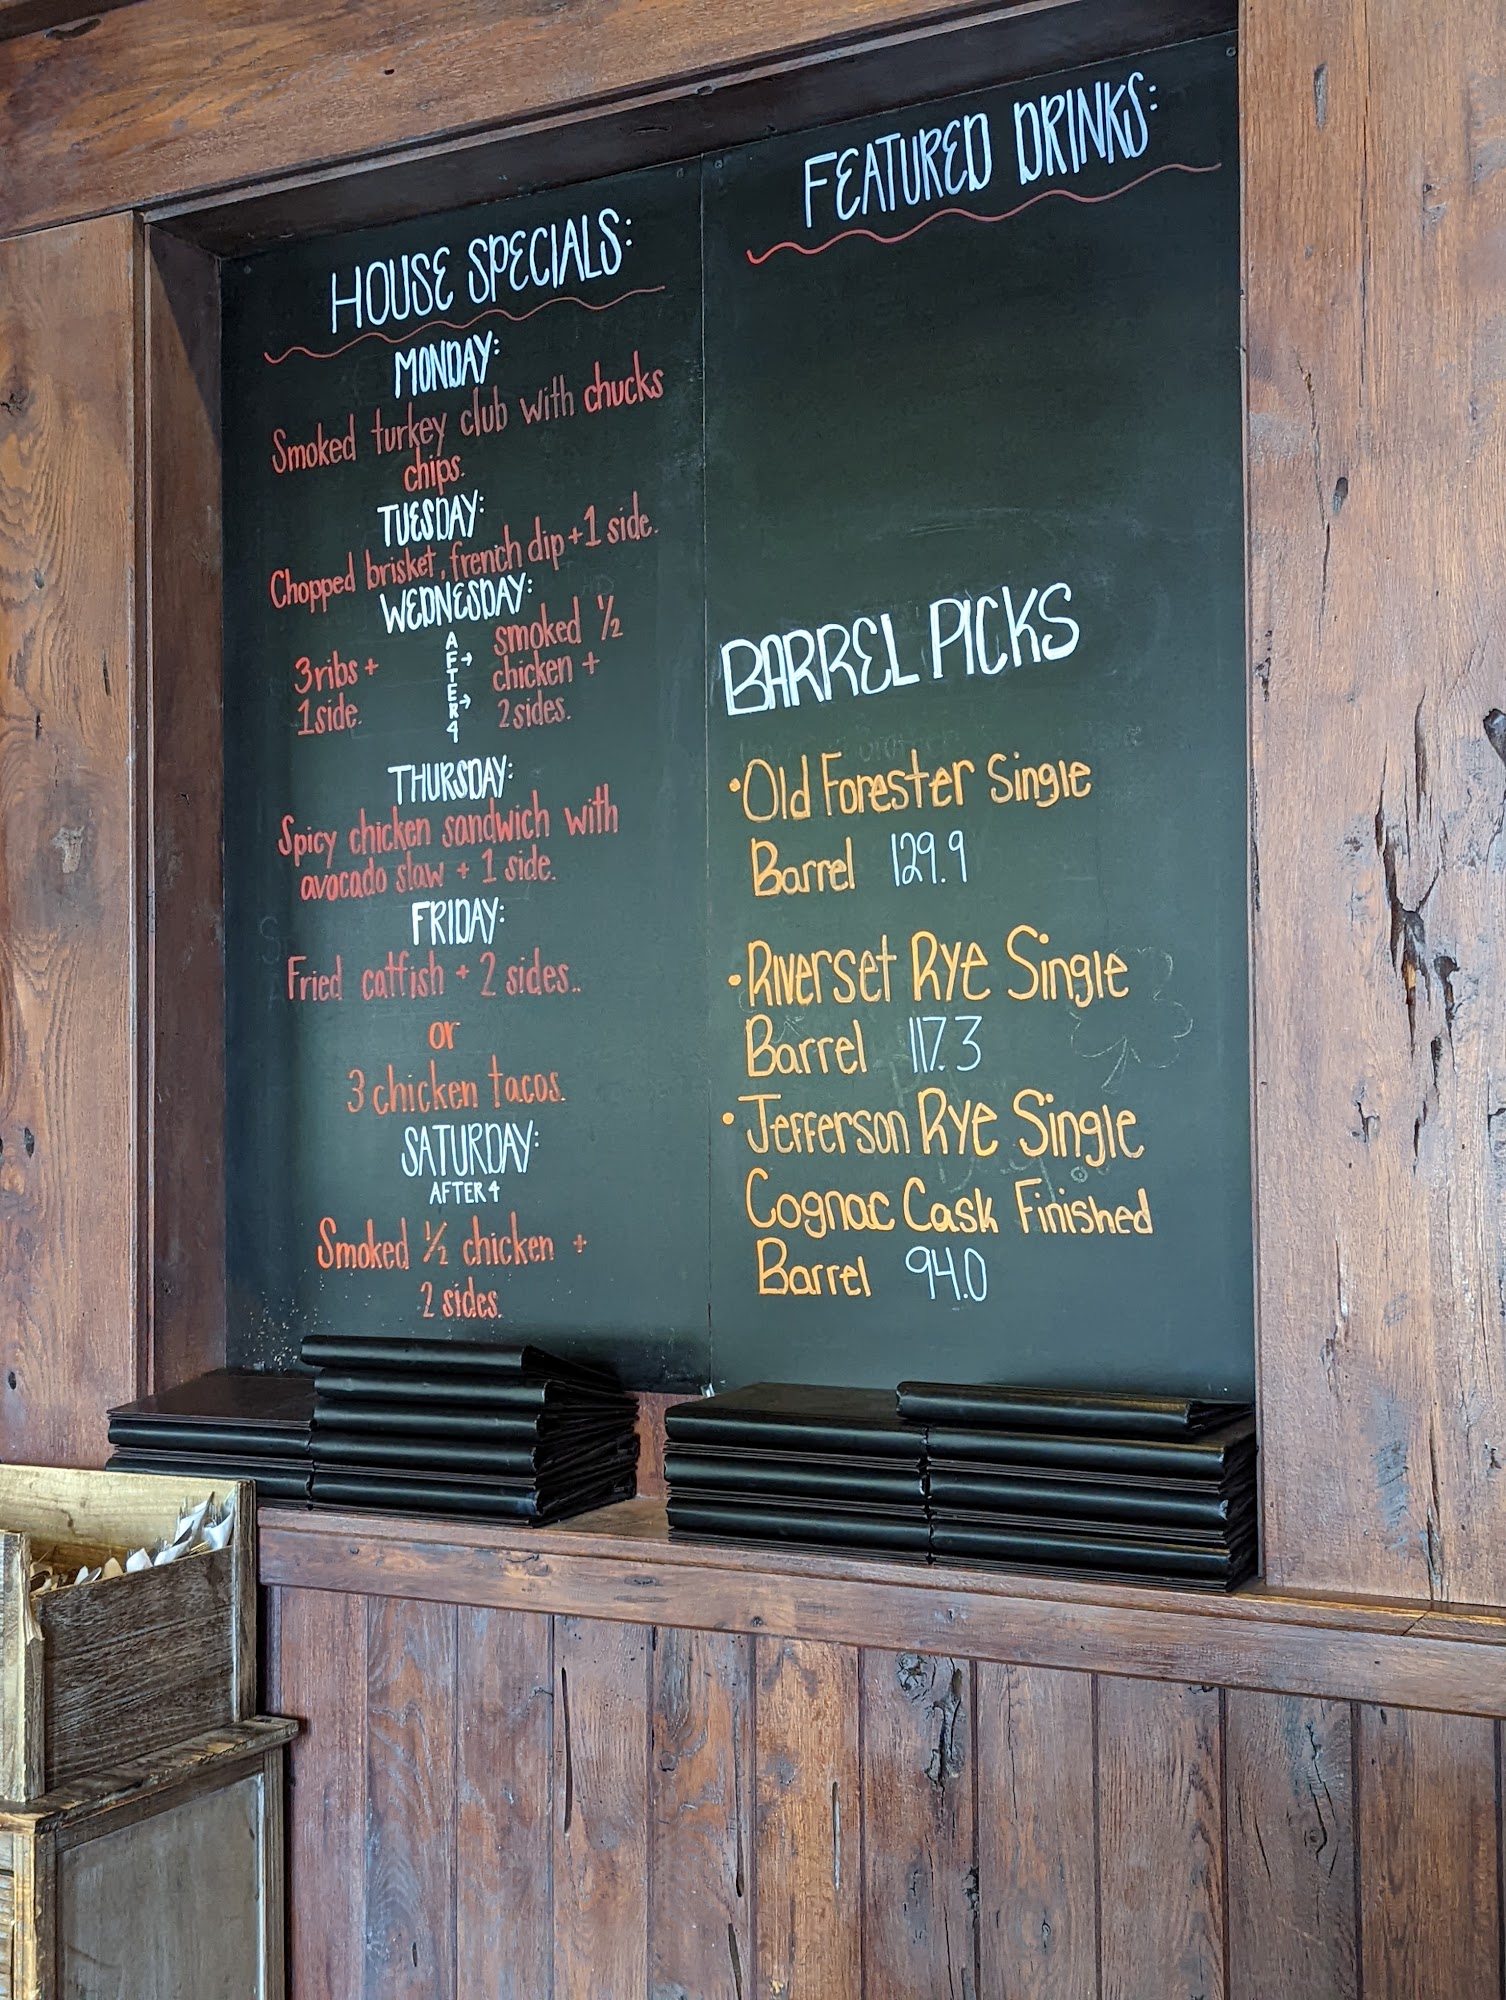 HOUSE SPECIALS:
MONDAY:
Smoked turkey club with chucks
chips.
TUESDAY:
Chopped brisket, french dip + 1 side.
WEDNESDAY:
3 ribs +
1 side.
AFTER 4
smoked ½
chicken +
2 sides.
THURSDAY:
Spicy chicken sandwich with
avocado slaw + 1 side.
FRIDAY:
Fried catfish + 2 sides..
or
3 chicken tacos.
SATURDAY:
AFTER 4
Smoked ½ chicken +
2 sides.
FEATURED DRINKS:
BARREL PICKS
• Old Forester Single
Barrel 129.9
• Riverset Rye Single
Barrel 117.3
• Jefferson Rye Single
Cognac Cask Finished
Barrel 94.0